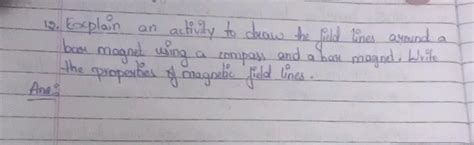 12. Explain an activity to draw the field lines around a
bar magnet using a compass and a bar magnet. Write
the properties of magnetic field lines.
Ans: